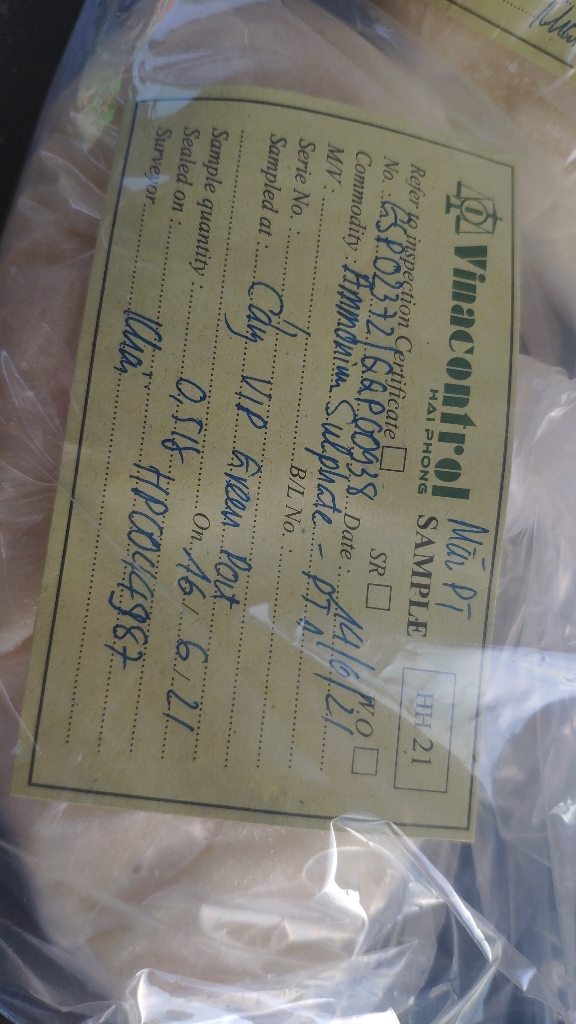 Vinacontrol
HAI PHONG
Mẫu PT
SAMPLE
HH 21
Refer to inspection Certificate
SR
WO
No.
Date : 14/6/21
Commodity : Ammonium Sulphate - PT
M/V :
Serie No. :
B/L No. :
Sampled at : Cảng VIP Green Port
Sample quantity : 0,5 kg
On 16/6/21
Sealed on :
Surveyor